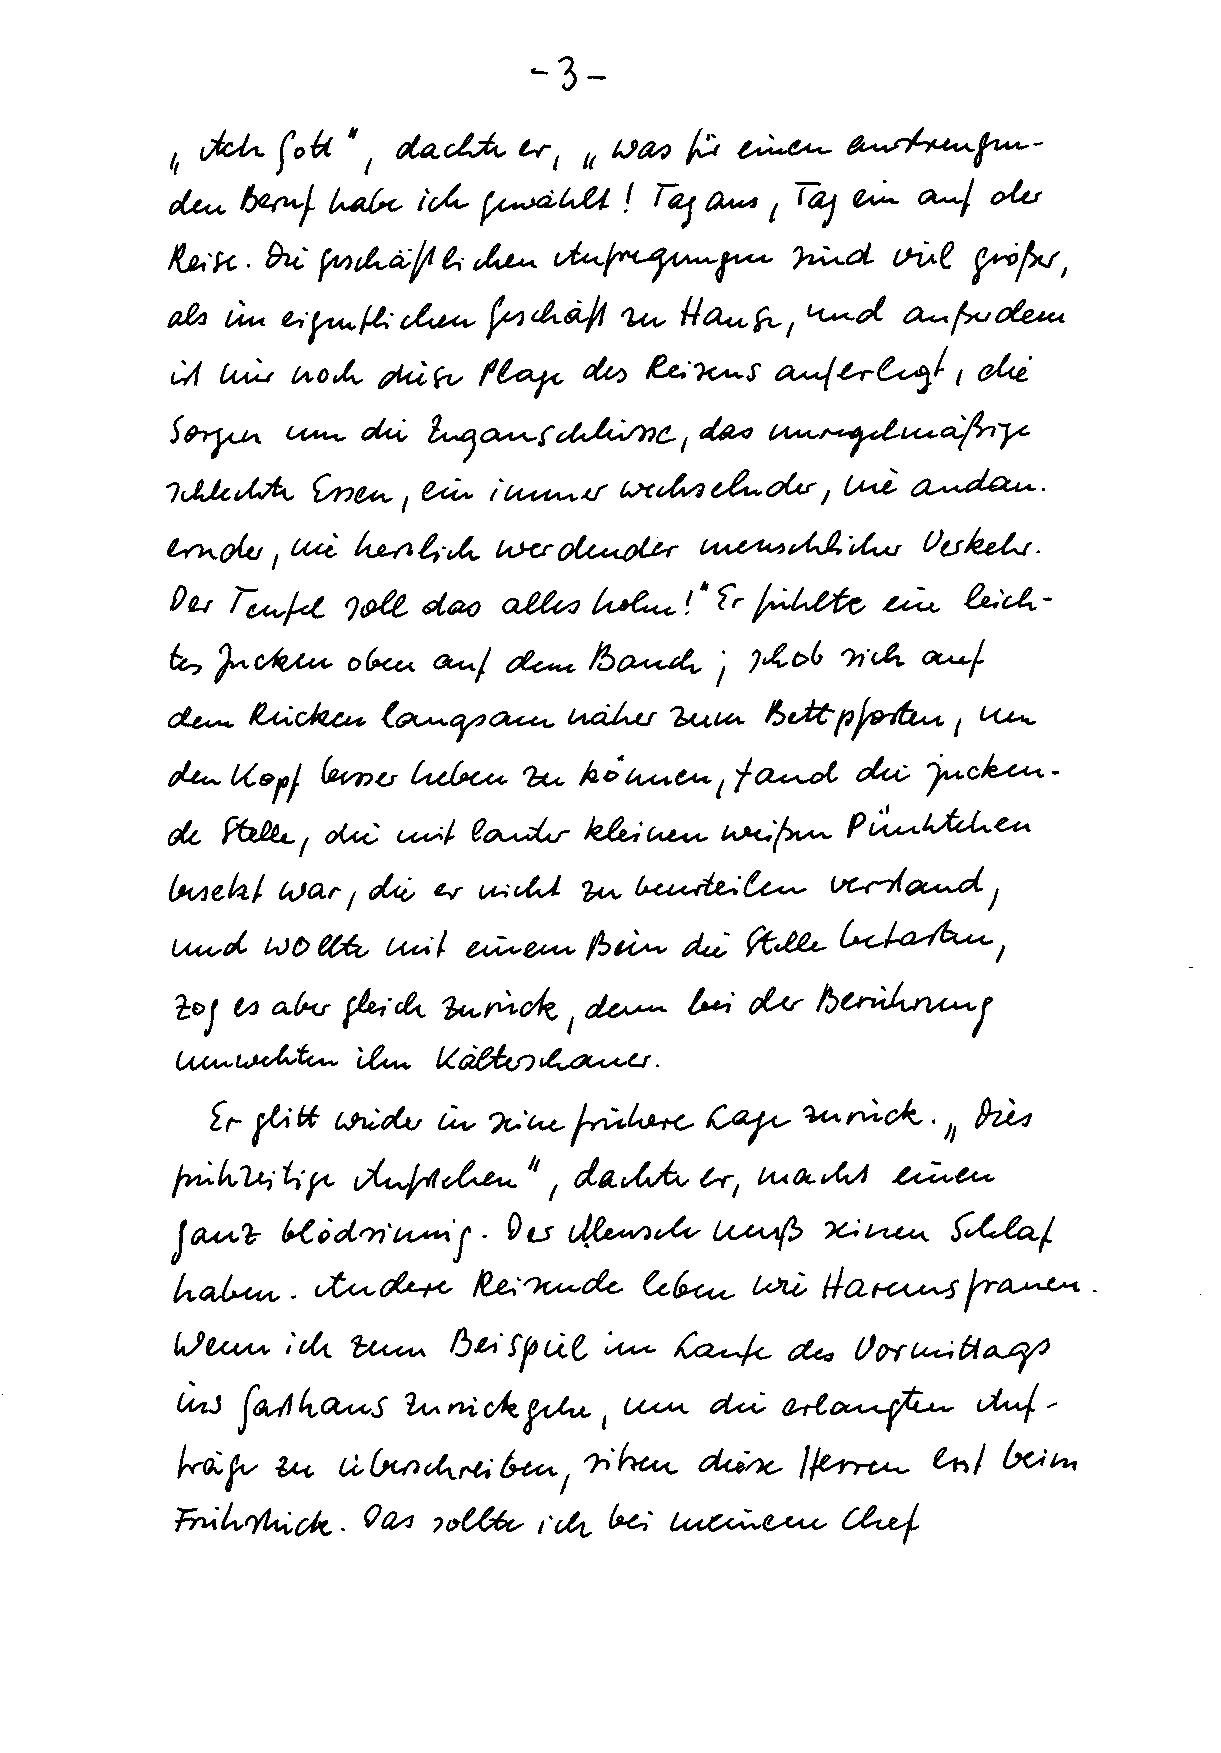 - 3 -
„Ach Gott", dachte er, „was für einen anstrengen-
den Beruf habe ich gewählt! Tag aus, Tag ein auf der
Reise. Die geschäftlichen Aufregungen sind viel größer,
als im eigentlichen Geschäft zu Hause, und außerdem
ist mir noch diese Plage des Reisens auferlegt, die
Sorgen um die Zuganschlüsse, das unregelmäßige
schlechte Essen, ein immer wechselnder, nie andau-
ernder, nie herzlich werdender menschlicher Verkehr.
Der Teufel soll das alles holen!" Er fühlte ein leich-
tes Jucken oben auf dem Bauch; schob sich auf
dem Rücken langsam näher zum Bettpfosten, um
den Kopf besser heben zu können, fand die jucken-
de Stelle, die mit lauter kleinen weißen Pünktchen
besetzt war, die er nicht zu beurteilen verstand,
und wollte mit einem Bein die Stelle betasten,
zog es aber gleich zurück, denn bei der Berührung
umwehten ihn Kälteschauer.
Er glitt wieder in seine frühere Lage zurück. „Dies
frühzeitige Aufstehen", dachte er, macht einen
ganz blödsinnig. Der Mensch muß seinen Schlaf
haben. Andere Reisende leben wie Haremsfrauen.
Wenn ich zum Beispiel im Laufe des Vormittags
ins Gasthaus zurückgehe, um die erlangten Auf-
träge zu überschreiben, sitzen diese Herren erst beim
Frühstück. Das sollte ich bei meinem Chef